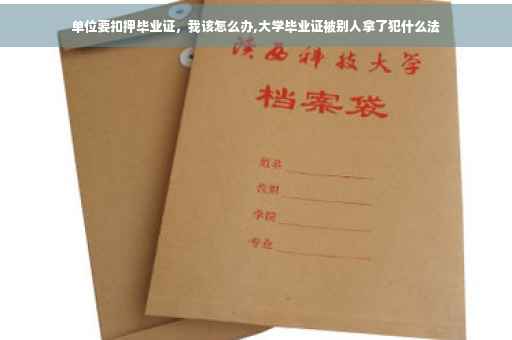 单位要扣押毕业证，我该怎么办,大学毕业证被别人拿了犯什么法
陕西科技大学
档案袋
姓名
学院
专业